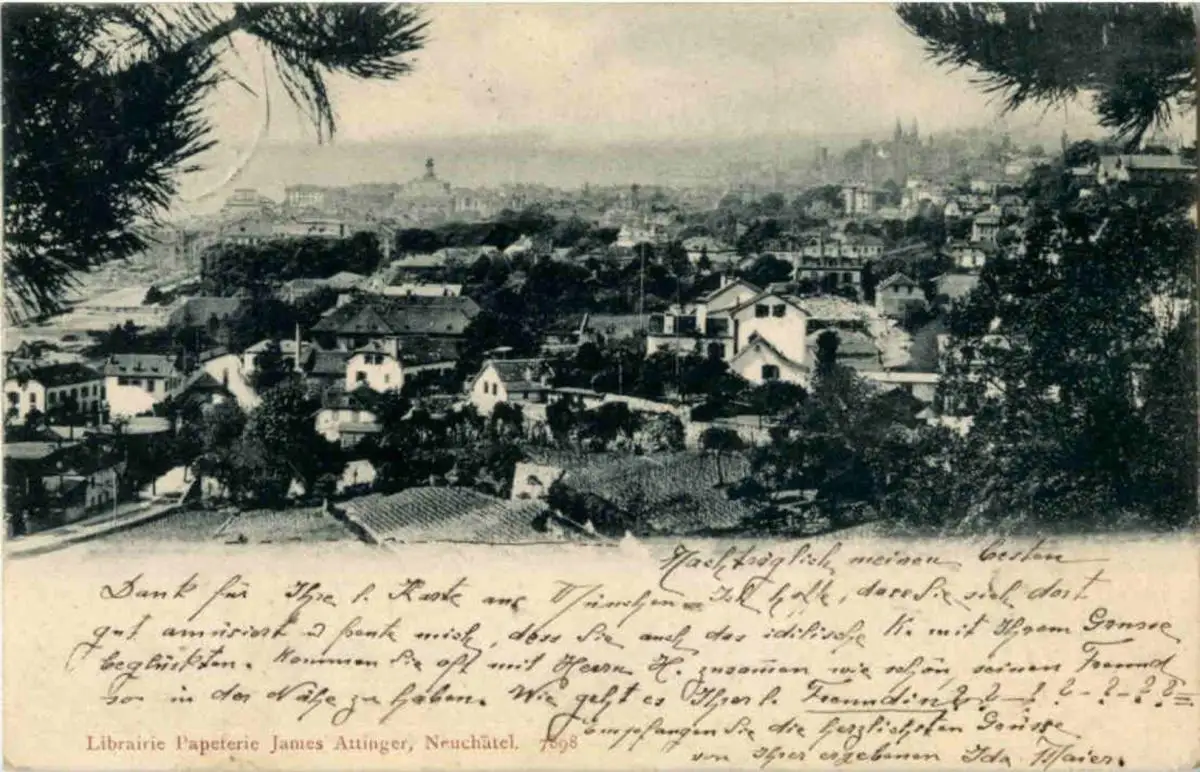 Nachträglich meinen besten
Dank für Ihre l. Karte aus München. Ich hoffe, dass Sie sich dort
gut amüsiert & freute mich, dass Sie auch das idilische K. mit Ihrem Grusse
beglückten. Kommen Sie oft mit Herrn H. zusammen wie schön, seinen Freund
so in der Nähe zu haben. Wie geht es Ihrer l. Freundin? ? - ! ? - ? - ? ?
Empfangen Sie die herzlichsten Grüsse
von Ihrer ergebenen Ida Maier.
Librairie Papeterie James Attinger, Neuchâtel. 7898